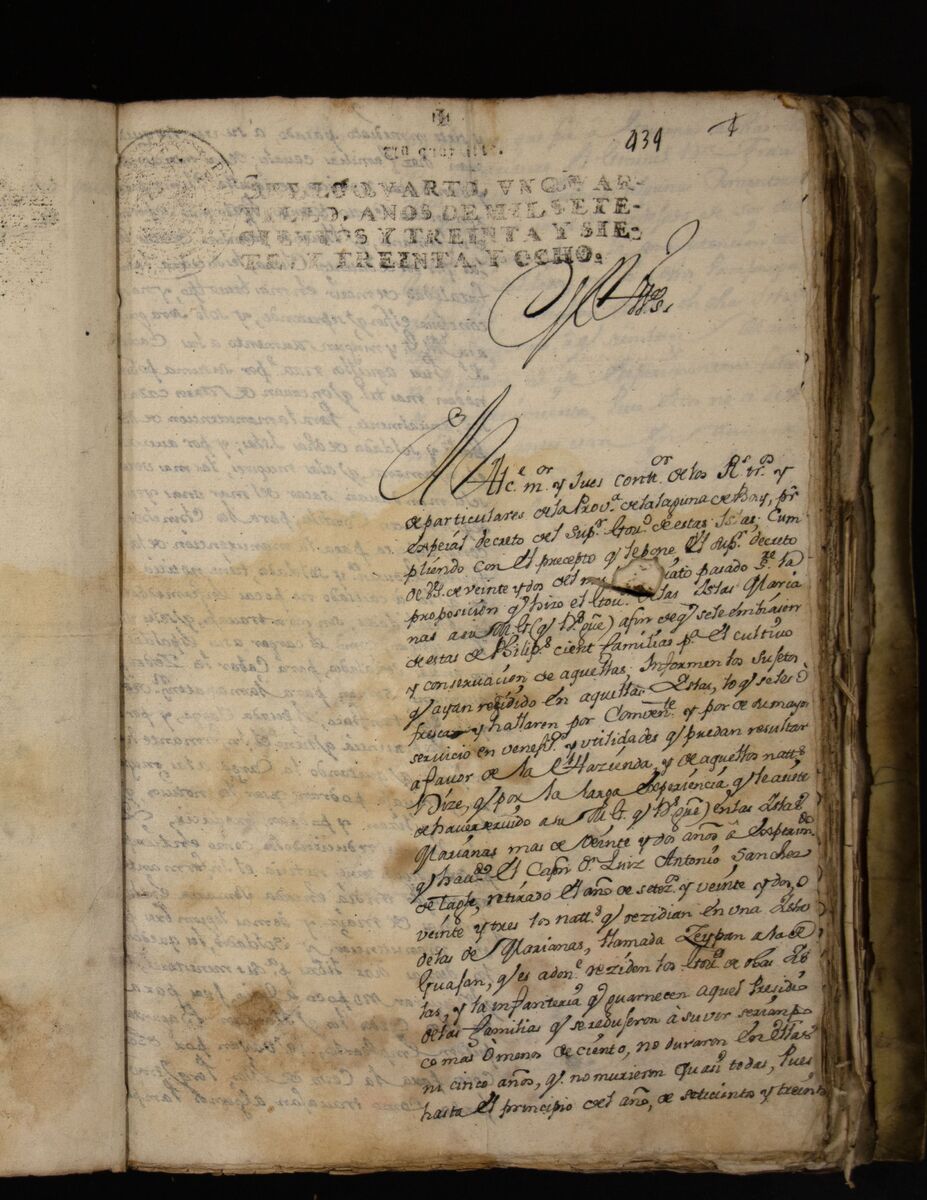 434
Vn quartillo.
SELLO QVARTO, VN QVAR-
TILLO, AÑOS DE MIL SETE-
CIENTOS Y TREINTA Y SIE-
TE, Y TREINTA Y OCHO.
Alc.e m.or y Jues de los R.s y
de particulares de la Prov.a de la laguna de Bay, p.r
expecial decreto del Sup.r Gov.o de estas Islas; Cum
pliendo con el precepto q.e le pone el sup.r decreto
de de veinte y dos del pasado la
proposicion q.e hizo el Gov.r de las Islas Maria
nas a su Mg.d (q.e D.s g.e) a fin de q.e se le embiasen
de estas de Philip.s cient familias p.a el cultivo
y conservacion de aquellas; Informen los sujetos
q.e ayan recidido en aquellas Islas, lo q.e se les o
fresca y hallaren por Comven.te y por de su mayor
servicio en venef.o y utilidades q.e puedan resultar
a favor de la R.l Hazienda, y de aquellos natt.s
Dize, q.e por la larga experiencia q.e le asiste
de haver servido a su Mg.d (q.e D.s g.e) en las Islas
Marianas mas de veinte y dos años
q.e el Cap.n D.n Luiz Antonio Sanchez
de tagle, retirado el año de setez.s y veinte y dos, o
veinte y tres los natt.s q.e rezidian en una Isla
de las de Marianas, llamada Zeypan a la de
Guajan, q.es adon.e reziden los Gov.es de otras Is
las, y la infanteria q.e guarnecen aquel Presidio
de las familias q.e se redujeron à su vir serian po
co mas ò menos de ciento, no duraron en ellas
ni cinco años, q.e no murieron quasi todas, Pues
hasta el principio del año, de seteciento y treinta